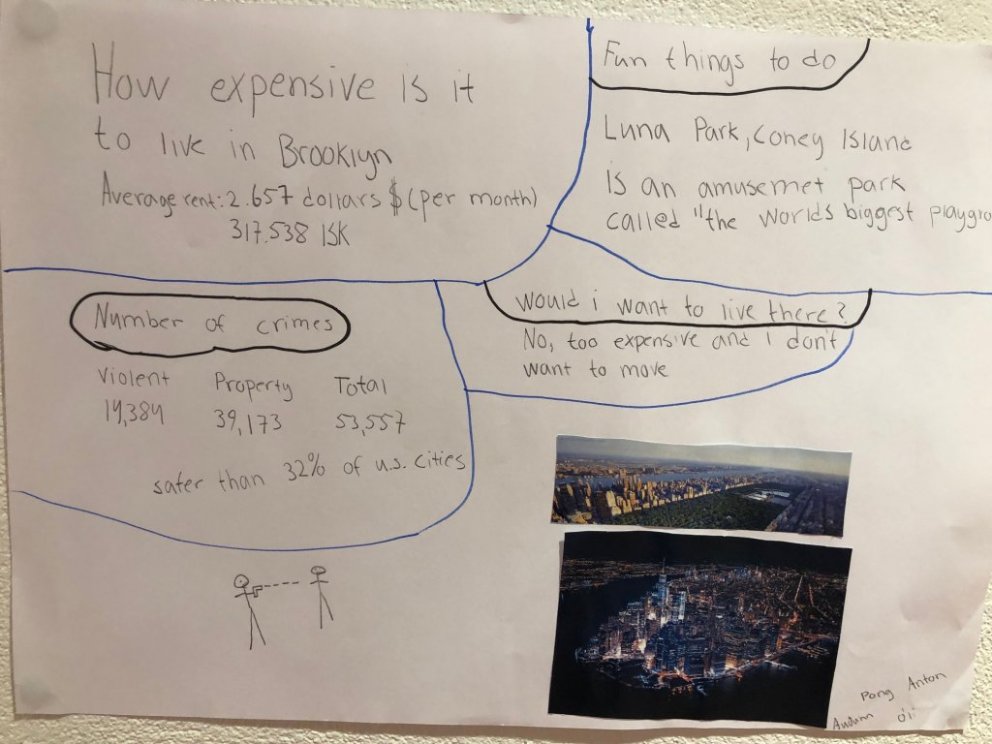 How expensive is it
to live in Brooklyn
Average rent: 2.657 dollars $ (per month)
317.538 ISK
Fun things to do
Luna Park, Coney Island
is an amusemet park
called "the worlds biggest playgro
Number of crimes
Violent Property Total
14,384 39,173 53,557
safer than 32% of u.s. cities
would i want to live there?
No, too expensive and i don't
want to move
Anton